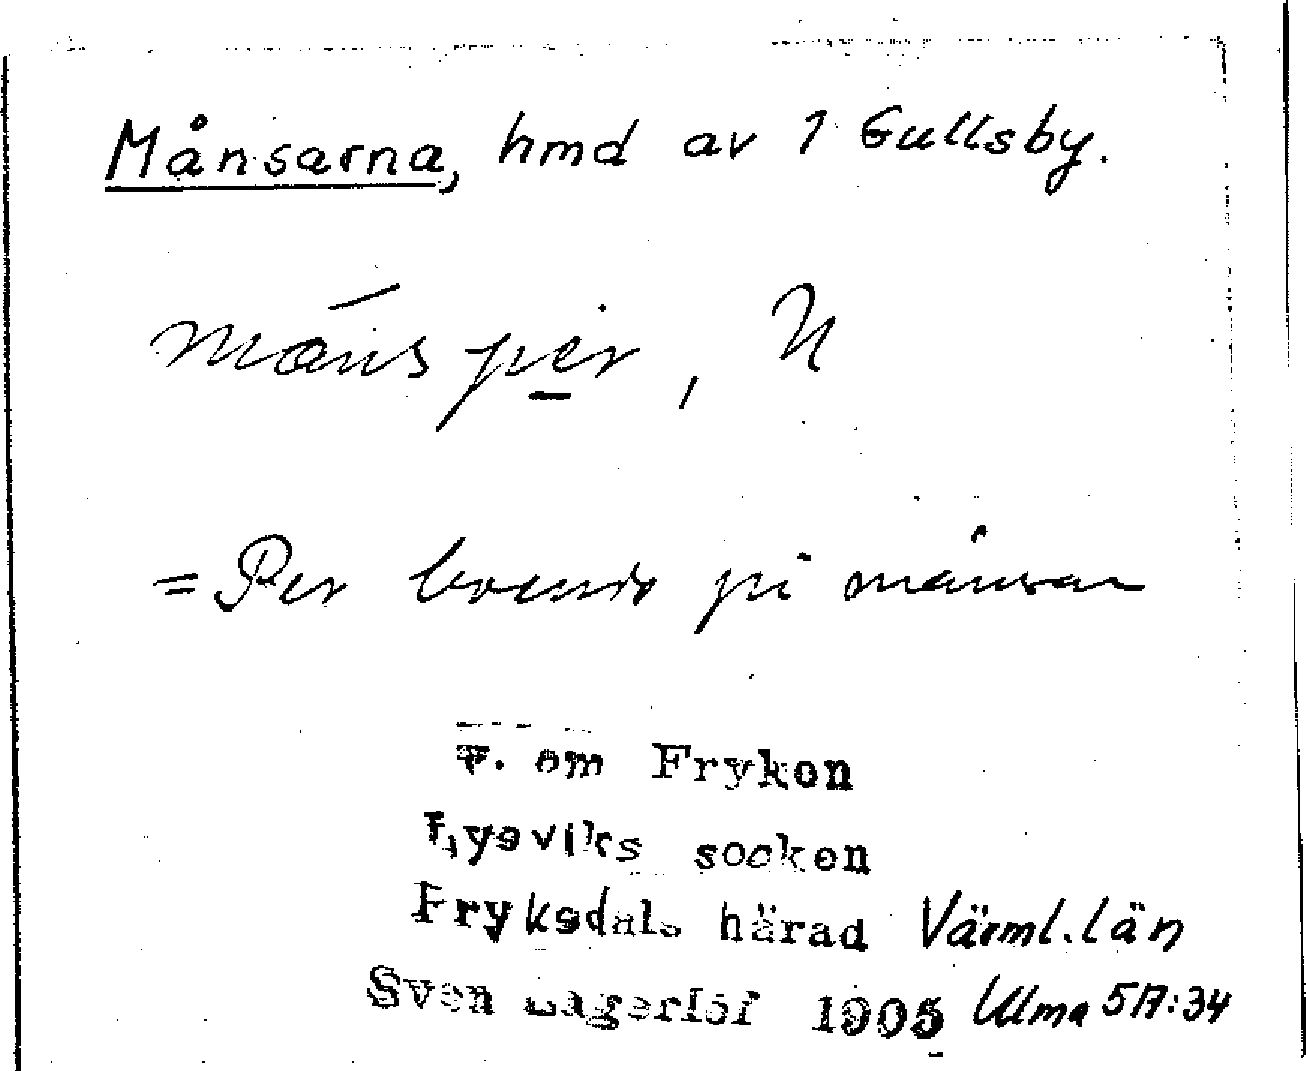 Månsarna, hmd av 1 Gullsby.
måns per, N
= Per boende på månsar
v. om Fryken
Lysviks socken
Fryksdals härad Värml. län
Sven Lagerlöf 1905 Ulma 517:34